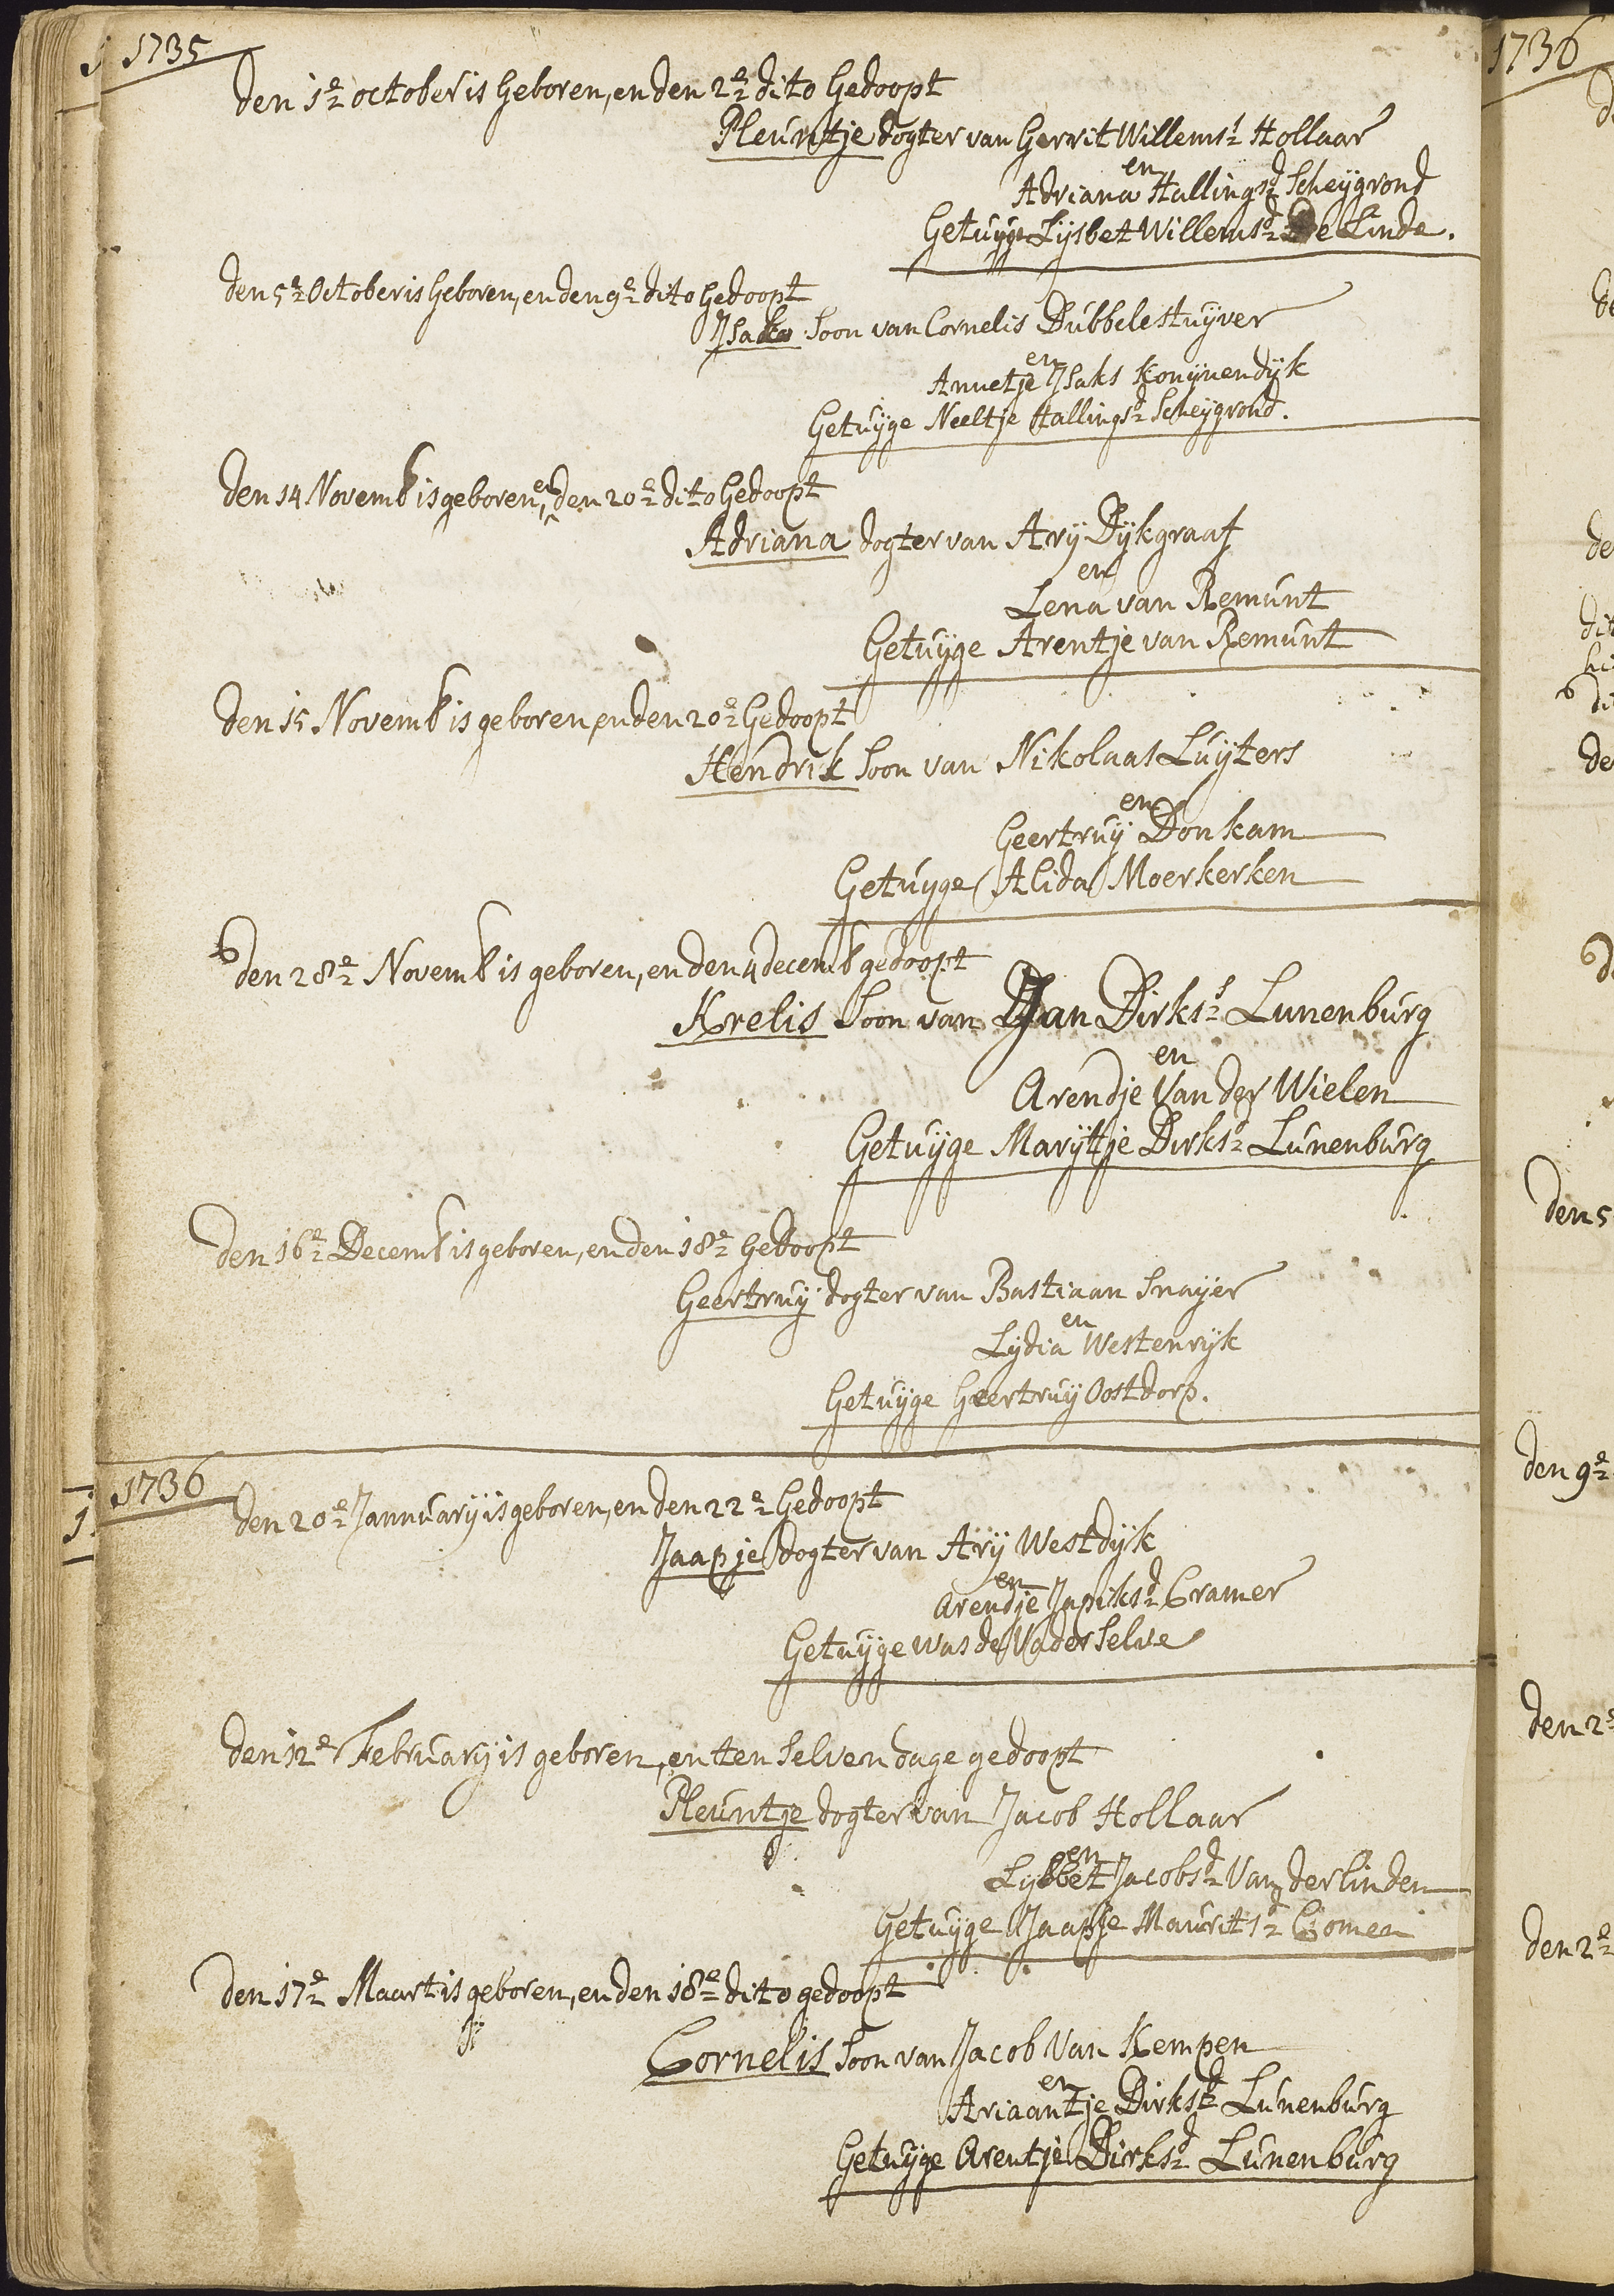 1735
den 1e october is Geboren, en den 2e dito Gedoopt
Pleuntje dogter van Gerrit Willems Hollaar
en
Adriana Hallingsd Scheijgrond
Getuijge Lijsbet Willemsd De Linde.
den 5e October is Geboren, en den 9e dito Gedoopt
Isak Soon van Cornelis Dubbele Stuijver
en
Annetje Isaks Konijnendijk
Getuijge Neeltje Hallingsd Scheijgrond.
den 14 Novemb is geboren, en den 20e dito Gedoopt
Adriana dogter van Arij Dijkgraaf
en
Lena van Remunt
Getuijge Arentje van Remunt
den 15 Novemb is geboren, en den 20e Gedoopt
Hendrik Soon van Nikolaas Luijters
en
Geertruij Donkam
Getuijge Alida Moerkerken
den 28e Novemb is geboren, en den 4 decemb gedoopt
Krelis Soon van Jan Dirks Lunenburg
en
Arendje Van der Wielen
Getuijge Marijtje Dirksd Lunenburg
den 16e Decemb is geboren, en den 18e Gedoopt
Geertruij dogter van Bastiaan Snayer
en
Lydia Westenrijk
Getuijge Geertruij Oostdorp.
1736
den 20e Jannuarij is geboren, en den 22e Gedoopt
Jaapje dogter van Arij Westdijk
en
Arendje Japiksd Cramer
Getuijge was de Vader Selve
den 12e February is geboren, en ten Selven dage gedoopt
Pleuntje dogter van Jacob Hollaar
en
Lijsbet Jacobsd Van der linden
Getuijge Jaapje Mauritsd
den 17e Maart is geboren, en den 18e dito gedoopt
Cornelis Soon van Jacob Van Kempen
en
Ariaantje Dirksd Lunenburg
Getuijge Arentje Dirksd Lunenburg
1736
den 5
den 9e
den 2
den 2e